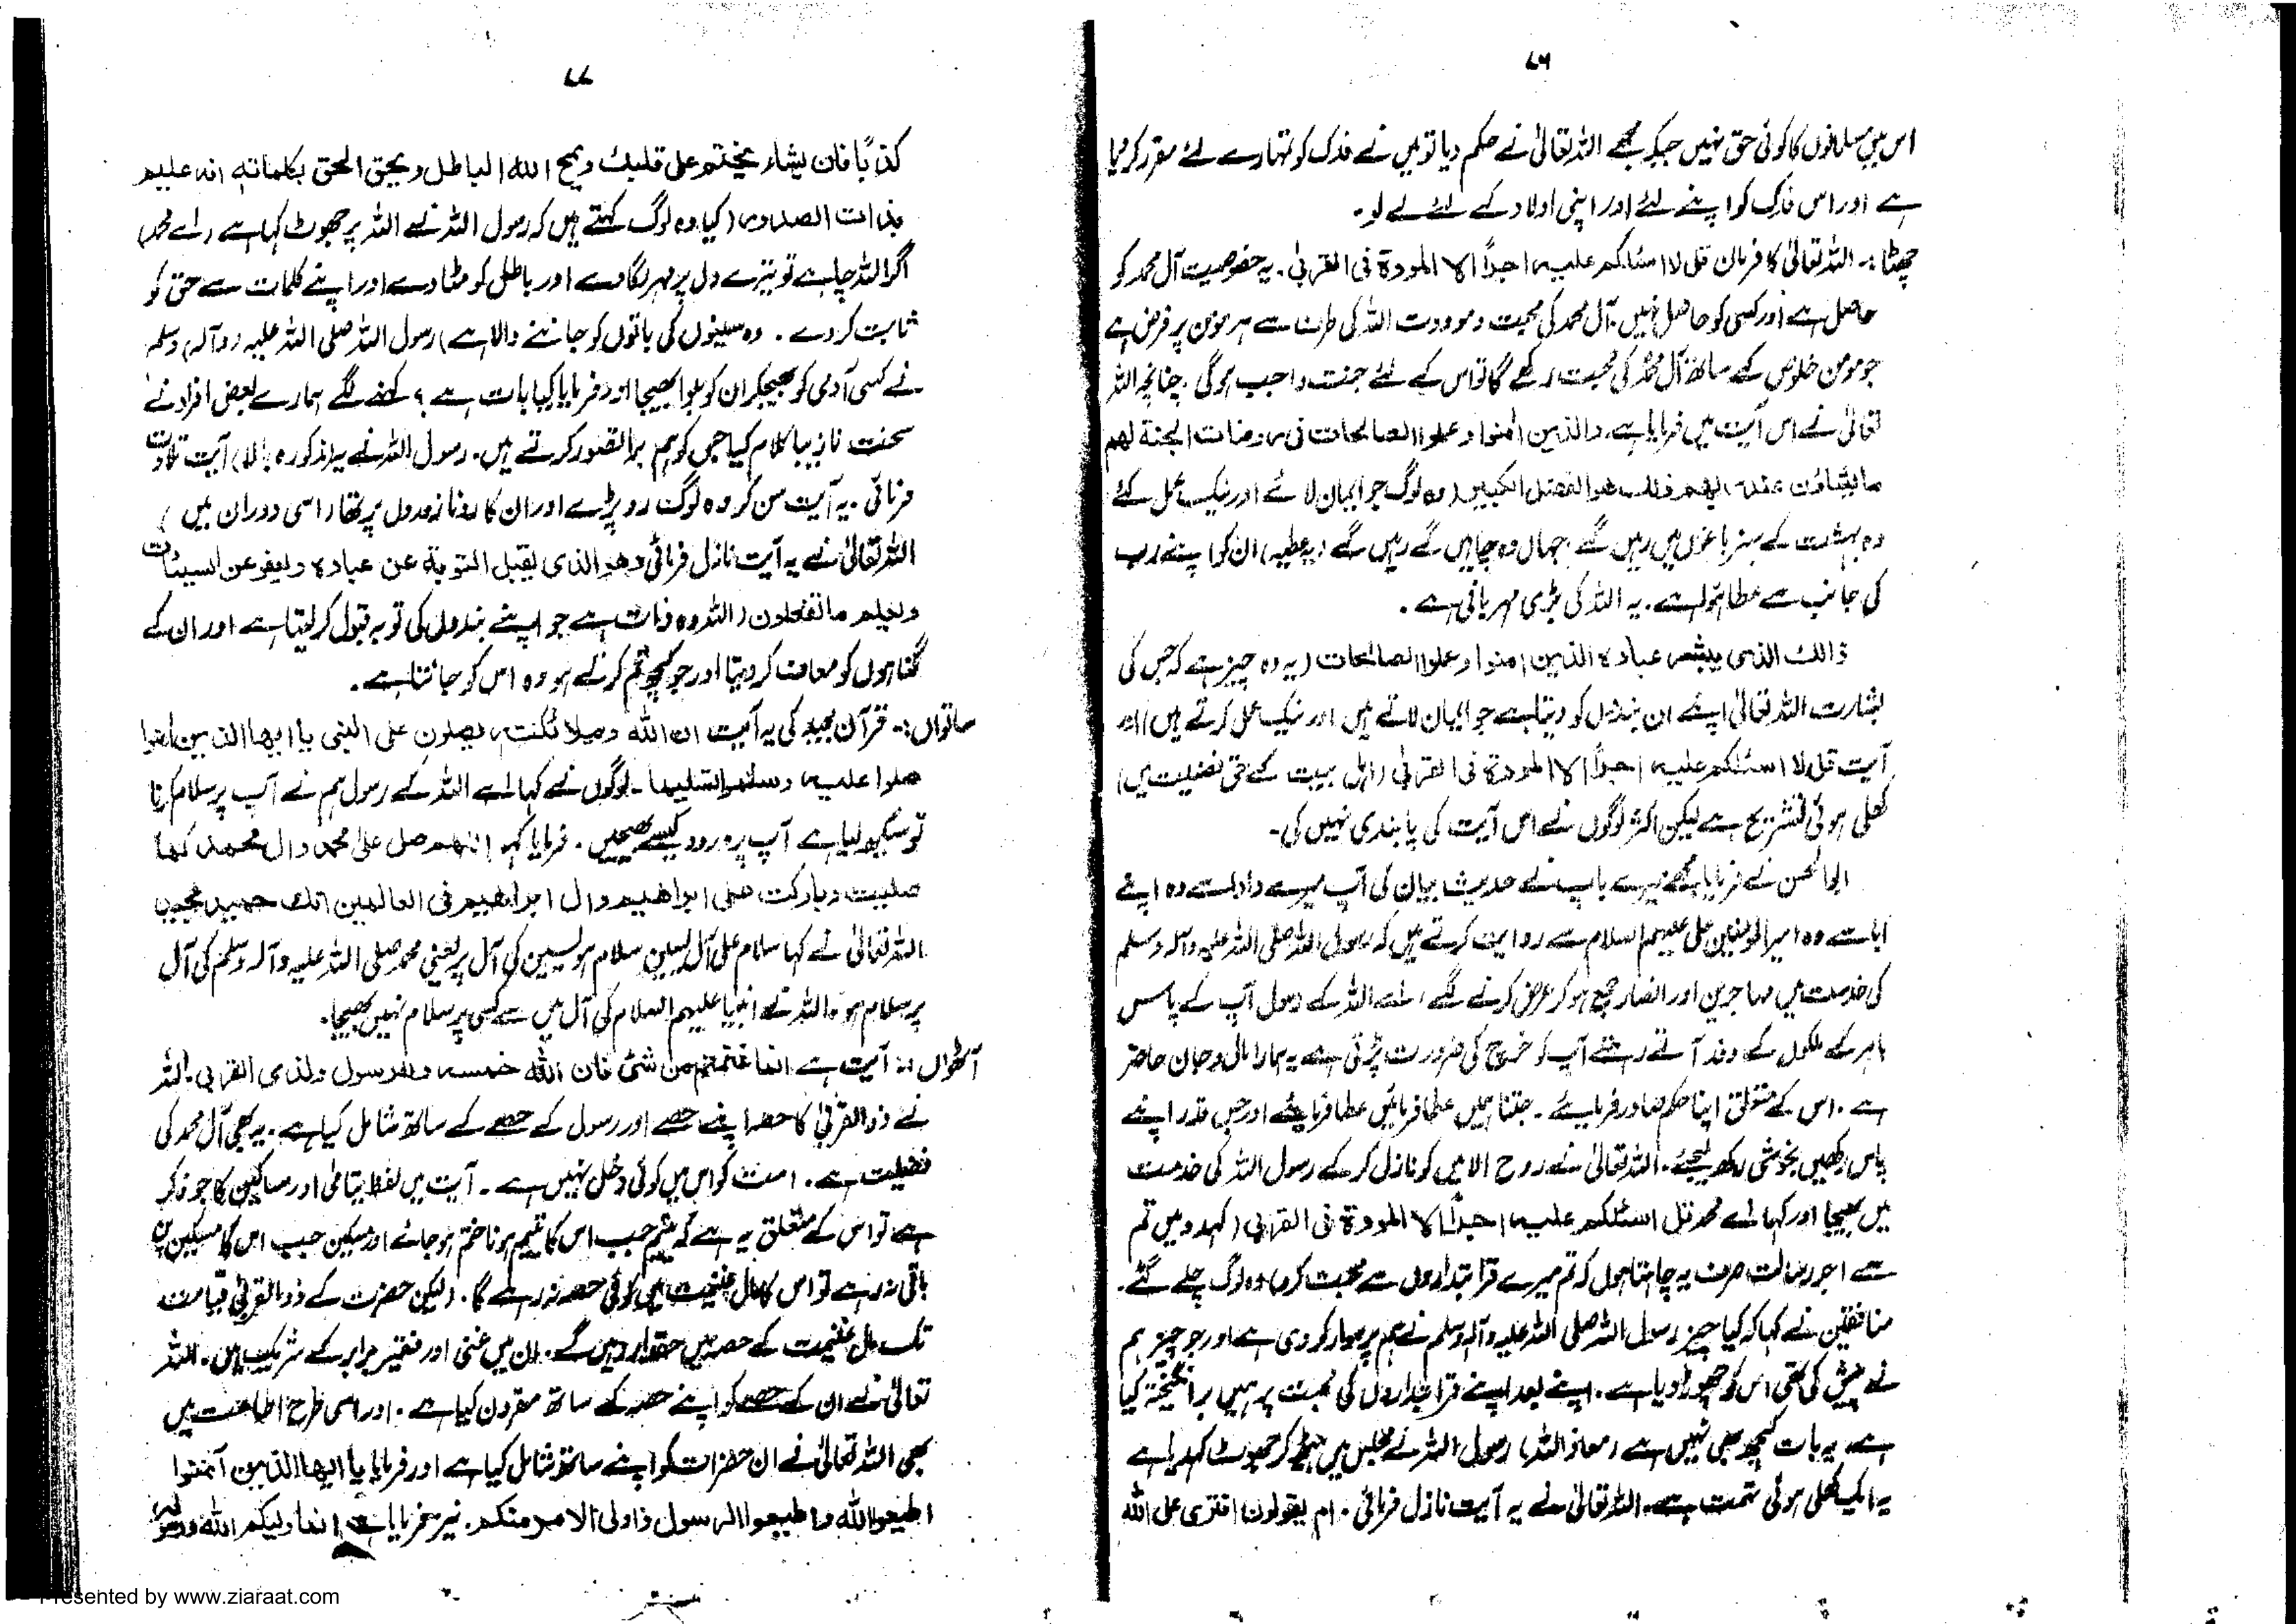 ۷۶
اس میں مسلمانوں کا کوئی حق نہیں جبکہ مجھے اللہ تعالیٰ نے حکم دیا تو میں نے فدک کو تمہارے لئے مقرر کر دیا
ہے اور اس فدک کو اپنے لئے اور اپنی اولاد کے لئے لے لو۔
چھٹا :۔ اللہ تعالیٰ کا فرمان قل لا اسئلکم علیہ اجراً الا المودۃ فی القربیٰ۔ یہ خصوصیت آل محمد کو
حاصل ہے اور کسی کو حاصل نہیں۔ آل محمد کی محبت و مودت اللہ کی طرف سے ہر مومن پر فرض ہے
جو مومن خلوص کے ساتھ آل محمد کی محبت رکھے گا تو اس کے لئے جنت واجب ہوگی۔ چنانچہ اللہ
تعالیٰ نے اس آیت میں فرمایا ہے۔ والذین امنوا وعملوا الصالحات فی روضات الجنۃ لھم
ما یشاؤن عند ربھم ذلک ھو الفضل الکبیر (وہ لوگ جو ایمان لائے اور نیک عمل کئے
وہ بہشت کے سبز باغوں میں رہیں گے جہاں وہ چاہیں گے رہیں گے (یہ عطیہ) ان کو اپنے رب
کی جانب سے عطا ہوا ہے۔ یہ اللہ کی بڑی مہربانی ہے۔
ذالک الذی یبشر عبادہ الذین امنوا وعملوا الصالحات (یہ وہ چیز ہے کہ جس کی
بشارت اللہ تعالیٰ اپنے ان بندوں کو دیتا ہے جو ایمان لاتے ہیں اور نیک عمل کرتے ہیں) اور
آیت قل لا اسئلکم علیہ اجراً الا المودۃ فی القربیٰ (اہل بیت کے حق فضیلت میں)
کھلی ہوئی تشریح ہے لیکن اکثر لوگوں نے اس آیت کی پابندی نہیں کی۔
ابوالحسن نے فرمایا مجھے میرے باپ نے حدیث بیان کی آپ میرے دادا سے وہ اپنے
آبا سے وہ امیر المومنین علی علیہم السلام سے روایت کرتے ہیں کہ رسول اللہ صلی اللہ علیہ وآلہ وسلم
کی خدمت میں مہاجرین اور انصار جمع ہو کر عرض کرنے لگے، اے اللہ کے رسول آپ کے پاس
باہر کے ملکوں کے وفد آتے رہتے آپ کو خرچ کی ضرورت پڑتی ہے یہ ہمارا مال و جان حاضر
ہے۔ اس کے متعلق اپنا حکم صادر فرمایئے۔ جتنا ہمیں عطا فرمائیں عطا فرمایئے اور جس قدر اپنے
پاس رکھیں بخوشی رکھ لیجئے۔ اللہ تعالیٰ نے روح الامین کو نازل کر کے رسول اللہ کی خدمت
میں بھیجا اور کہا اے محمد قل لا اسئلکم علیہ اجراً الا المودۃ فی القربی (کہہ دو میں تم
سے اجر رسالت صرف یہ چاہتا ہوں کہ تم میرے قرابتداروں سے محبت کرو) وہ لوگ چلے گئے۔
منافقین نے کہا کہ کیا چیز رسول اللہ صلی اللہ علیہ وآلہ وسلم نے ہم پر سوار کر دی ہے اور جو چیز ہم
نے پیش کی تھی اس کو چھوڑ دیا ہے۔ اپنے بعد اپنے قرابتداروں کی محبت پر ہمیں برانگیختہ کیا
ہے، یہ بات کچھ بھی نہیں ہے (معاذ اللہ) رسول اللہ نے مجلس میں بیٹھ کر جھوٹ کہہ دیا ہے
یہ ایک کھلی ہوئی تہمت ہے۔ اللہ تعالیٰ نے یہ آیت نازل فرمائی۔ ام یقولون افتری علی اللہ
۷۷
کذباً فان یشاء یختم علی قلبک ویمح اللہ الباطل ویحق الحق بکلماتہ انہ علیم
بذات الصدور (کیا وہ لوگ کہتے ہیں کہ رسول اللہ نے اللہ پر جھوٹ کہا ہے (اے محمد)
اگر اللہ چاہے تو تیرے دل پر مہر لگا دے اور باطل کو مٹا دے اور اپنے کلمات سے حق کو
ثابت کر دے۔ وہ سینوں کی باتوں کو جاننے والا ہے) رسول اللہ صلی اللہ علیہ (وآلہ) وسلم
نے کسی آدمی کو بھیجکر ان کو بلوا بھیجا اور فرمایا کیا بات ہے؟ کہنے لگے ہمارے بعض افراد نے
سخت نازیبا کلام کیا جس کو ہم برا تصور کرتے ہیں۔ رسول اللہ نے یہ (مذکورہ بالا) آیت تلاوت
فرمائی۔ یہ آیت سن کر وہ لوگ رو پڑے اور ان کا رونا زوروں پر تھا (اسی دوران میں)
اللہ تعالیٰ نے یہ آیت نازل فرمائی وھو الذی یقبل التوبۃ عن عبادہ ویعفو عن السیئات
ویعلم ما تفعلون (اللہ وہ ذات ہے جو اپنے بندوں کی توبہ قبول کر لیتا ہے اور ان کے
گناہوں کو معاف کر دیتا اور جو کچھ تم کرتے ہو وہ اس کو جانتا ہے۔
ساتواں :۔ قرآن مجید کی یہ آیت ان اللہ وملائکتہ یصلون علی النبی یا ایھا الذین امنوا
صلوا علیہ وسلموا تسلیما۔ لوگوں نے کہا اے اللہ کے رسول ہم نے آپ پر سلام کرنا
تو سیکھ لیا ہے آپ پر درود کیسے بھیجیں۔ فرمایا کہو اللھم صل علی محمد وال محمد کما
صلیت وبارکت علی ابراھیم وال ابراھیم فی العالمین انک حمید مجید
اللہ تعالیٰ نے کہا سلام علی آل یٰسین سلام ہو یسین کی آل پر یعنی محمد صلی اللہ علیہ وآلہ وسلم کی آل
پر سلام ہو۔ اللہ نے انبیا علیہم السلام کی آل میں سے کسی پر سلام نہیں بھیجا۔
آٹھواں :۔ آیت ہے انما غنمتم من شئ فان للہ خمسہ وللرسول ولذی القربی۔ اللہ
نے ذوالقربیٰ کا حصہ اپنے حصے اور رسول کے حصے کے ساتھ شامل کیا ہے۔ یہ بھی آل محمد کی
فضیلت ہے۔ امت کو اس میں کوئی دخل نہیں ہے۔ آیت میں لفظ یتامیٰ اور مساکین کا جو ذکر
ہے تو اس کے متعلق یہ ہے کہ یتیم جب اس کا یتیم ہونا ختم ہو جائے اور مسکین جب اس کا مسکین پن
باقی نہ رہے تو اس کا مال غنیمت میں کوئی حصہ نہ رہے گا۔ (لیکن حضرت کے ذوالقربیٰ قیامت
تک مال غنیمت کے حصہ میں حقدار رہیں گے۔ ان میں غنی اور فقیر برابر کے شریک ہیں۔ اللہ
تعالیٰ نے ان کے حصہ کو اپنے حصہ کے ساتھ مقرون کیا ہے۔ اور اسی طرح اطاعت میں
بھی اللہ تعالیٰ نے ان حضرات کو اپنے ساتھ شامل کیا ہے اور فرمایا یا ایھا الذین آمنوا
اطیعوا اللہ واطیعوا الرسول واولی الامر منکم۔ نیز فرمایا ہے انما ولیکم اللہ ورسولہ
Presented by www.ziaraat.com